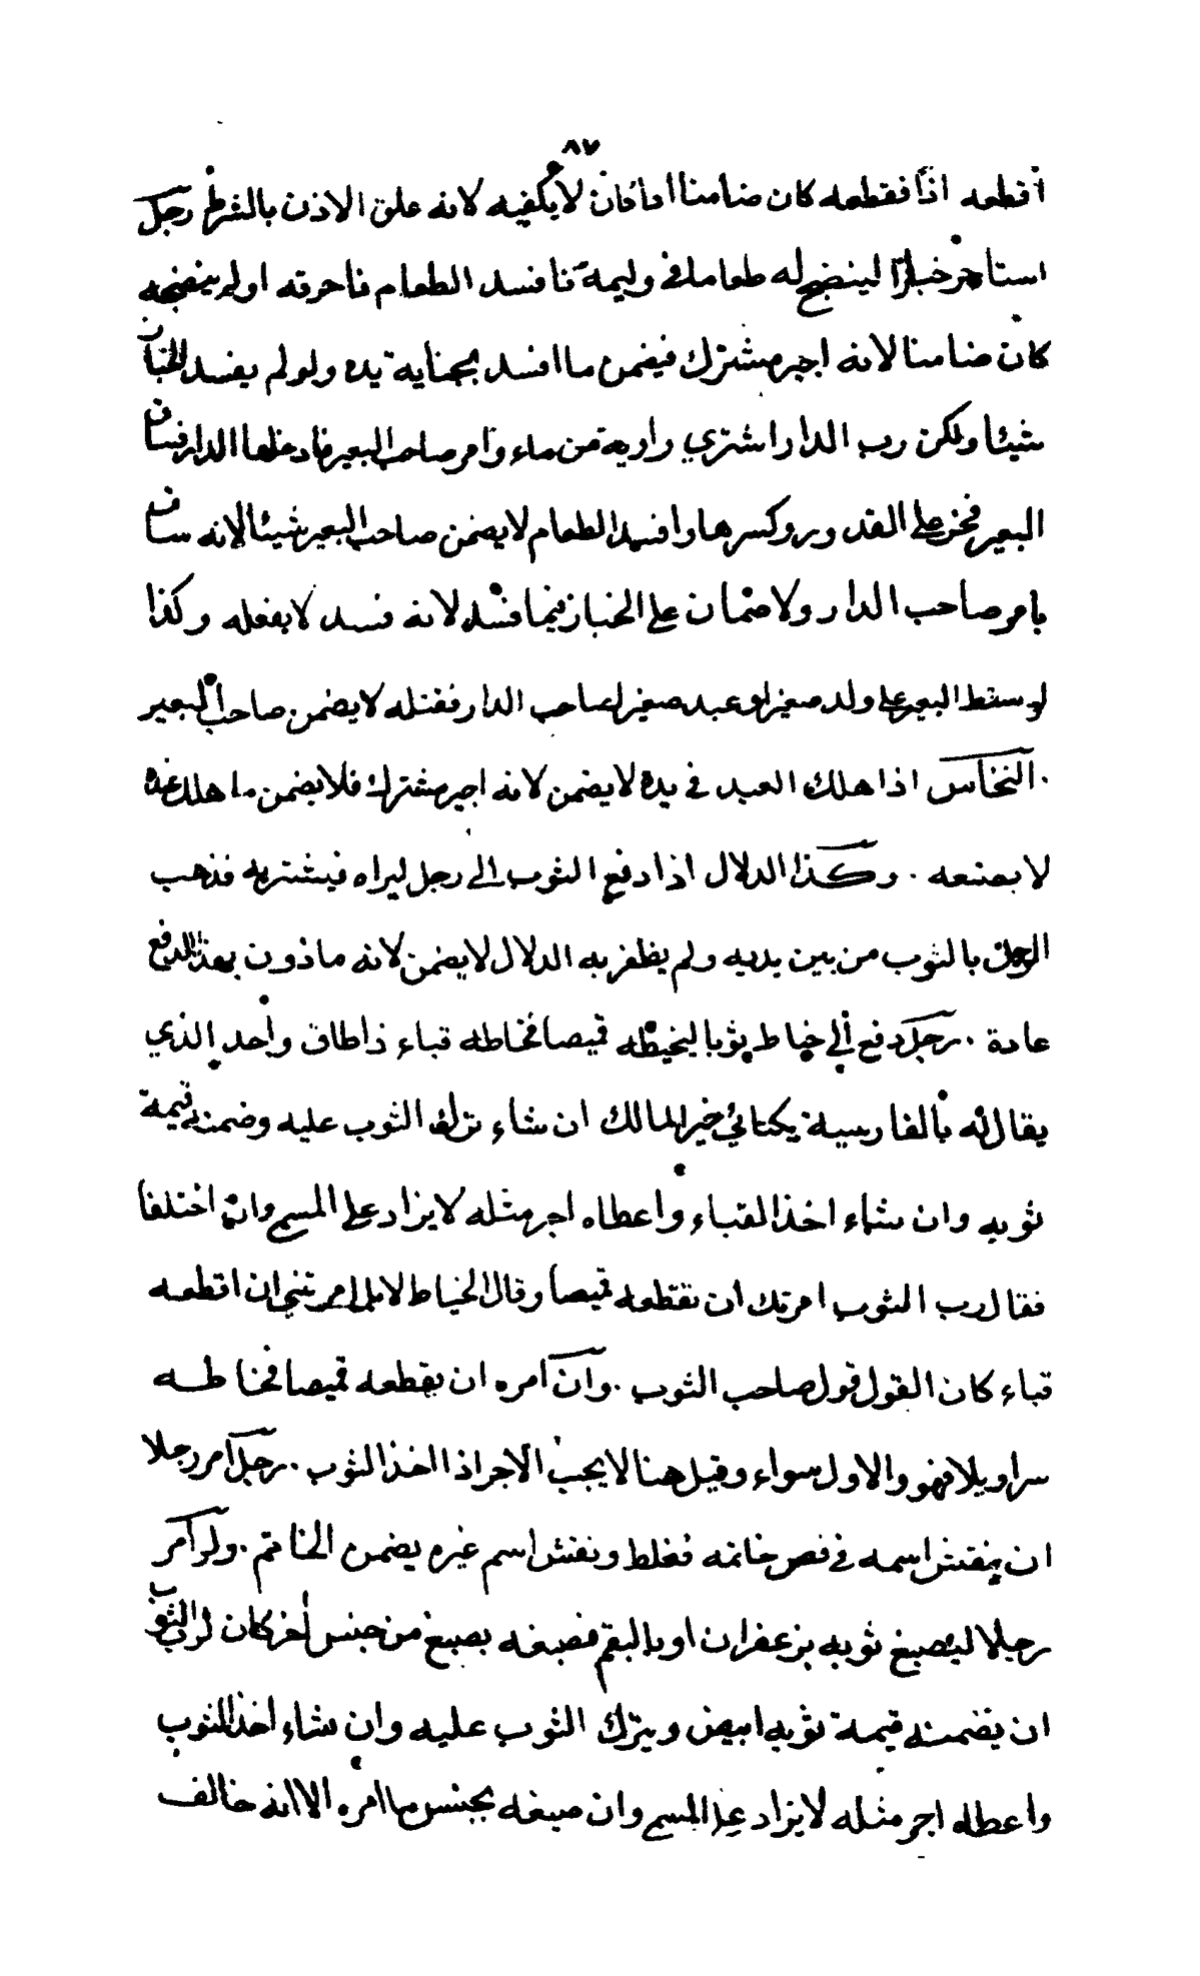 ٨٧
اقطعه اذًا فقطعه كان ضامنا اذا كان لا يكفيه لانه علق الاذن بالشرط رجل
استاجر خبازا لينضج له طعاما في وليمة فافسد الطعام فاحرقه اولم ينضجه
كان ضامنا لانه اجير مشترك فيضمن ما افسد بجناية يده ولو لم يفسد الخباز
شيئا ولكن رب الدار اشتري راوية من ماء وامر صاحب البعير فادخلها الدار فساق
البعير فخر على القدور وكسرها وافسد الطعام لا يضمن صاحب البعير شيئا لانه ساق
بامر صاحب الدار ولا ضمان على الخباز فيما فسد لانه فسد لا بفعله وكذا
لو سقط البعير على ولد صغير او عبد صغير لصاحب الدار فقتله لا يضمن صاحب البعير
. النخاس اذا هلك العبد في يده لا يضمن لانه اجير مشترك فلا يضمن ما هلك عنده
لا بصنعه . وكذا الدلال اذا دفع الثوب الى رجل ليراه فيشتريه فذهب
الرجل بالثوب من بين يديه ولم يظفر به الدلال لا يضمن لانه ماذون بهذا الدفع
عادة . رجل دفع الي خياط ثوبا ليخيطه قميصا فخاطه قباء ذا طاق واحد الذي
يقال له بالفارسية يكتائي خير المالك ان شاء ترك الثوب عليه وضمنه قيمة
ثوبه وان شاء اخذ القباء واعطاه اجر مثله لا يزاد على المسمى وان اختلفا
فقال رب الثوب امرتك ان تقطعه قميصا وقال الخياط لا بل امرتني ان اقطعه
قباء كان القول قول صاحب الثوب . وان امره ان يقطعه قميصا فخاطه
سراويلا فهو والاول سواء وقيل هنا لا يجب الاجر اذا اخذ الثوب . رجل امر رجلا
ان ينقش اسمه في فص خاتمه فغلط ونقش اسم غيره يضمن الخاتم . ولو امر
رجلا ليصبغ ثوبه بزعفران او بالبقم فصبغه بصبغ من جنس اخر كان لرب الثوب
ان يضمنه قيمة ثوبه ابيض ويترك الثوب عليه وان شاء اخذ الثوب
واعطاه اجر مثله لا يزاد على المسمى وان صبغه بجنس ما امره الا انه خالف